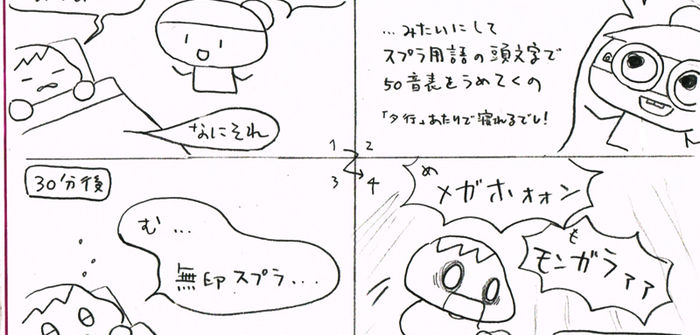 なにそれ
…みたいにして
スプラ用語の頭文字で
50音表をうめてくの
「タ行」あたりで寝れるでし!
1 2
3 4
30分後
む…
無印スプラ…
め
メガホォォン
も
モンガラァァ